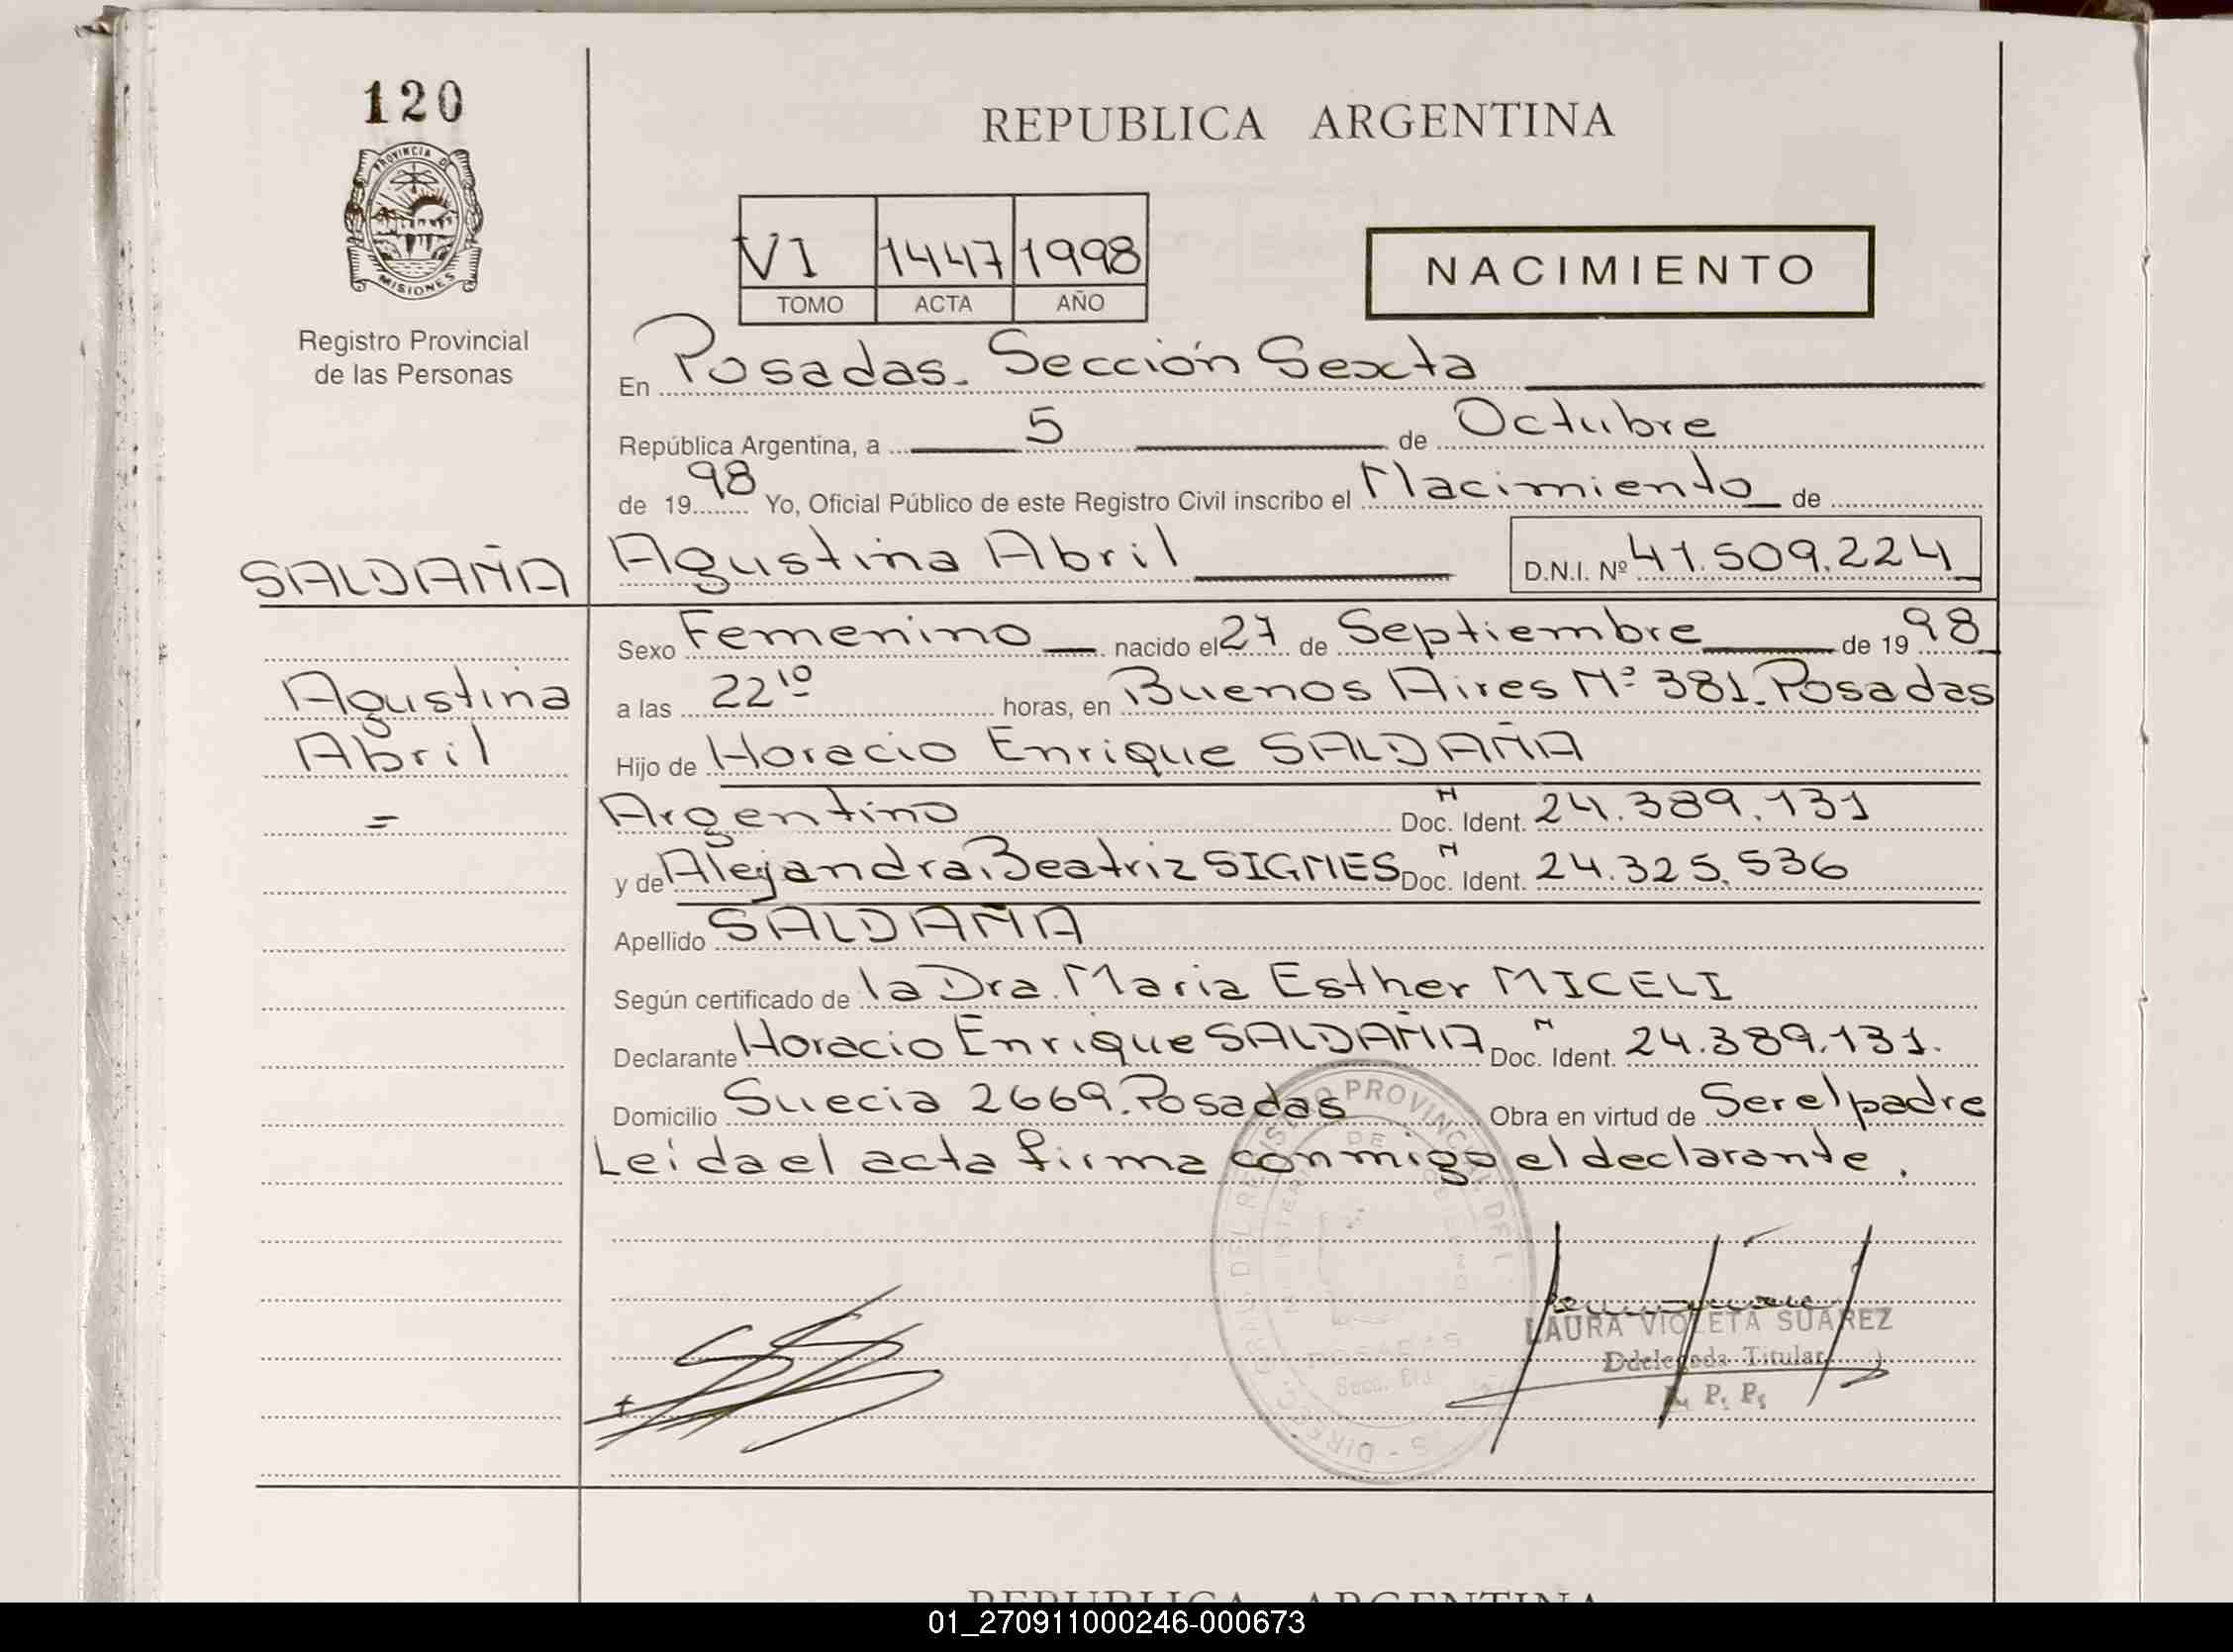 120
PROVINCIA DE
MISIONES
Registro Provincial
de las Personas
REPUBLICA ARGENTINA
VI 1447 1998
TOMO ACTA AÑO
NACIMIENTO
En Posadas. Sección Sexta
República Argentina, a 5 de Octubre
de 1998 Yo, Oficial Público de este Registro Civil inscribo el Nacimiento de
SALDAÑA Agustina Abril D.N.I. Nº 41.509.224
Sexo Femenino nacido el 27 de Septiembre de 1998
Agustina a las 22 10 horas, en Buenos Aires Nº 381. Posadas
Abril Hijo de Horacio Enrique SALDAÑA
= Argentino Doc. Ident. N 24.389.131
y de Alejandra Beatriz SIGNES Doc. Ident. N 24.325.536
Apellido SALDAÑA
Según certificado de la Dra. Maria Esther MICELI
Declarante Horacio Enrique SALDAÑA Doc. Ident. N 24.389.131.
Domicilio Suecia 2669. Posadas Obra en virtud de Ser el padre
Leída el acta firma conmigo el declarante.
LAURA VIOLETA SUAREZ
Ddelegada Titular
R. P. P.
REPUBLICA ARGENTINA
01_270911000246-000673